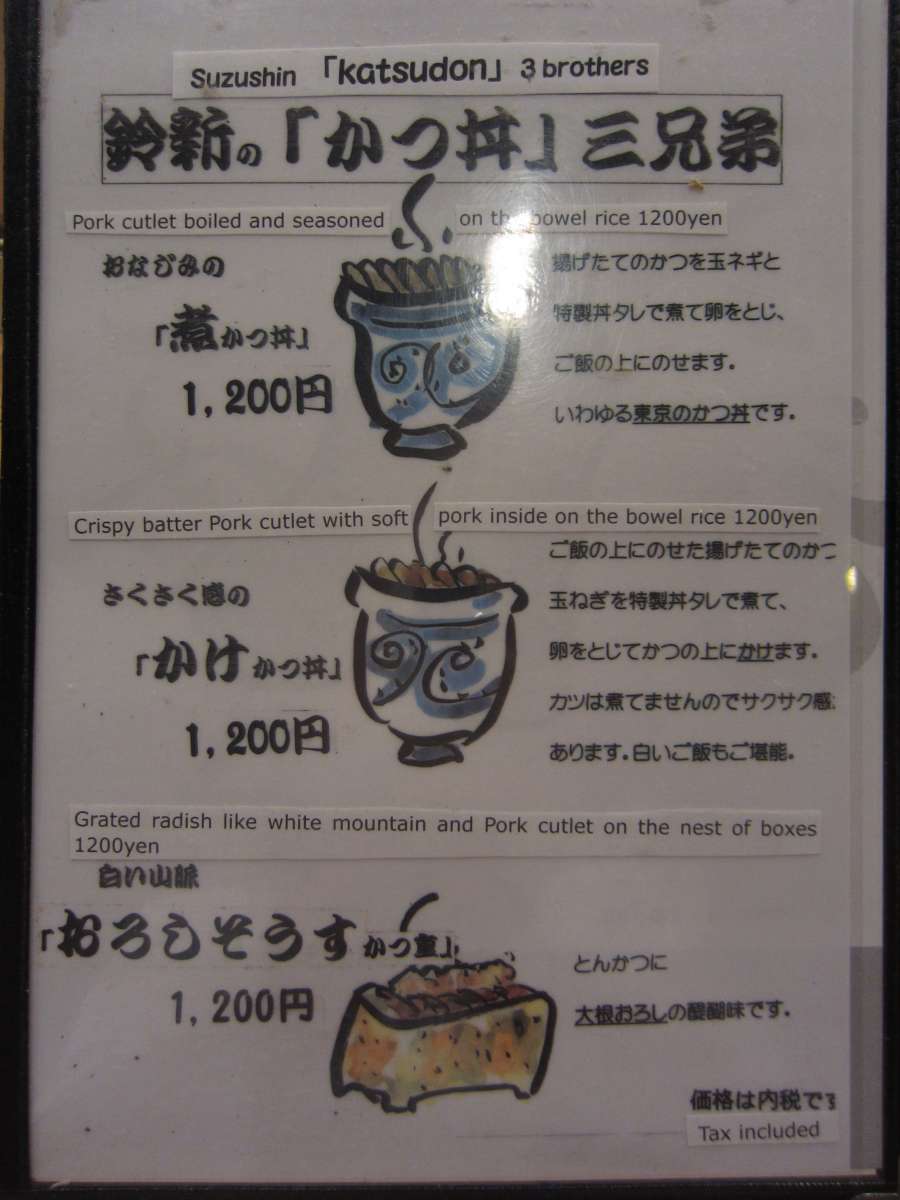 Suzushin 「katsudon」 3 brothers
鈴新の「かつ丼」三兄弟
Pork cutlet boiled and seasoned on the bowel rice 1200yen
おなじみの
「煮かつ丼」
1,200円
揚げたてのかつを玉ネギと
特製丼タレで煮て卵をとじ、
ご飯の上にのせます。
いわゆる東京のかつ丼です。
Crispy batter Pork cutlet with soft pork inside on the bowel rice 1200yen
さくさく感の
「かけかつ丼」
1,200円
ご飯の上にのせた揚げたてのかつ
玉ねぎを特製丼タレで煮て、
卵をとじてかつの上にかけます。
カツは煮てませんのでサクサク感
あります。白いご飯もご堪能。
Grated radish like white mountain and Pork cutlet on the nest of boxes
1200yen
白い山脈
「おろしそうすかつ重」
1,200円
とんかつに
大根おろしの醍醐味です。
価格は内税で
Tax included